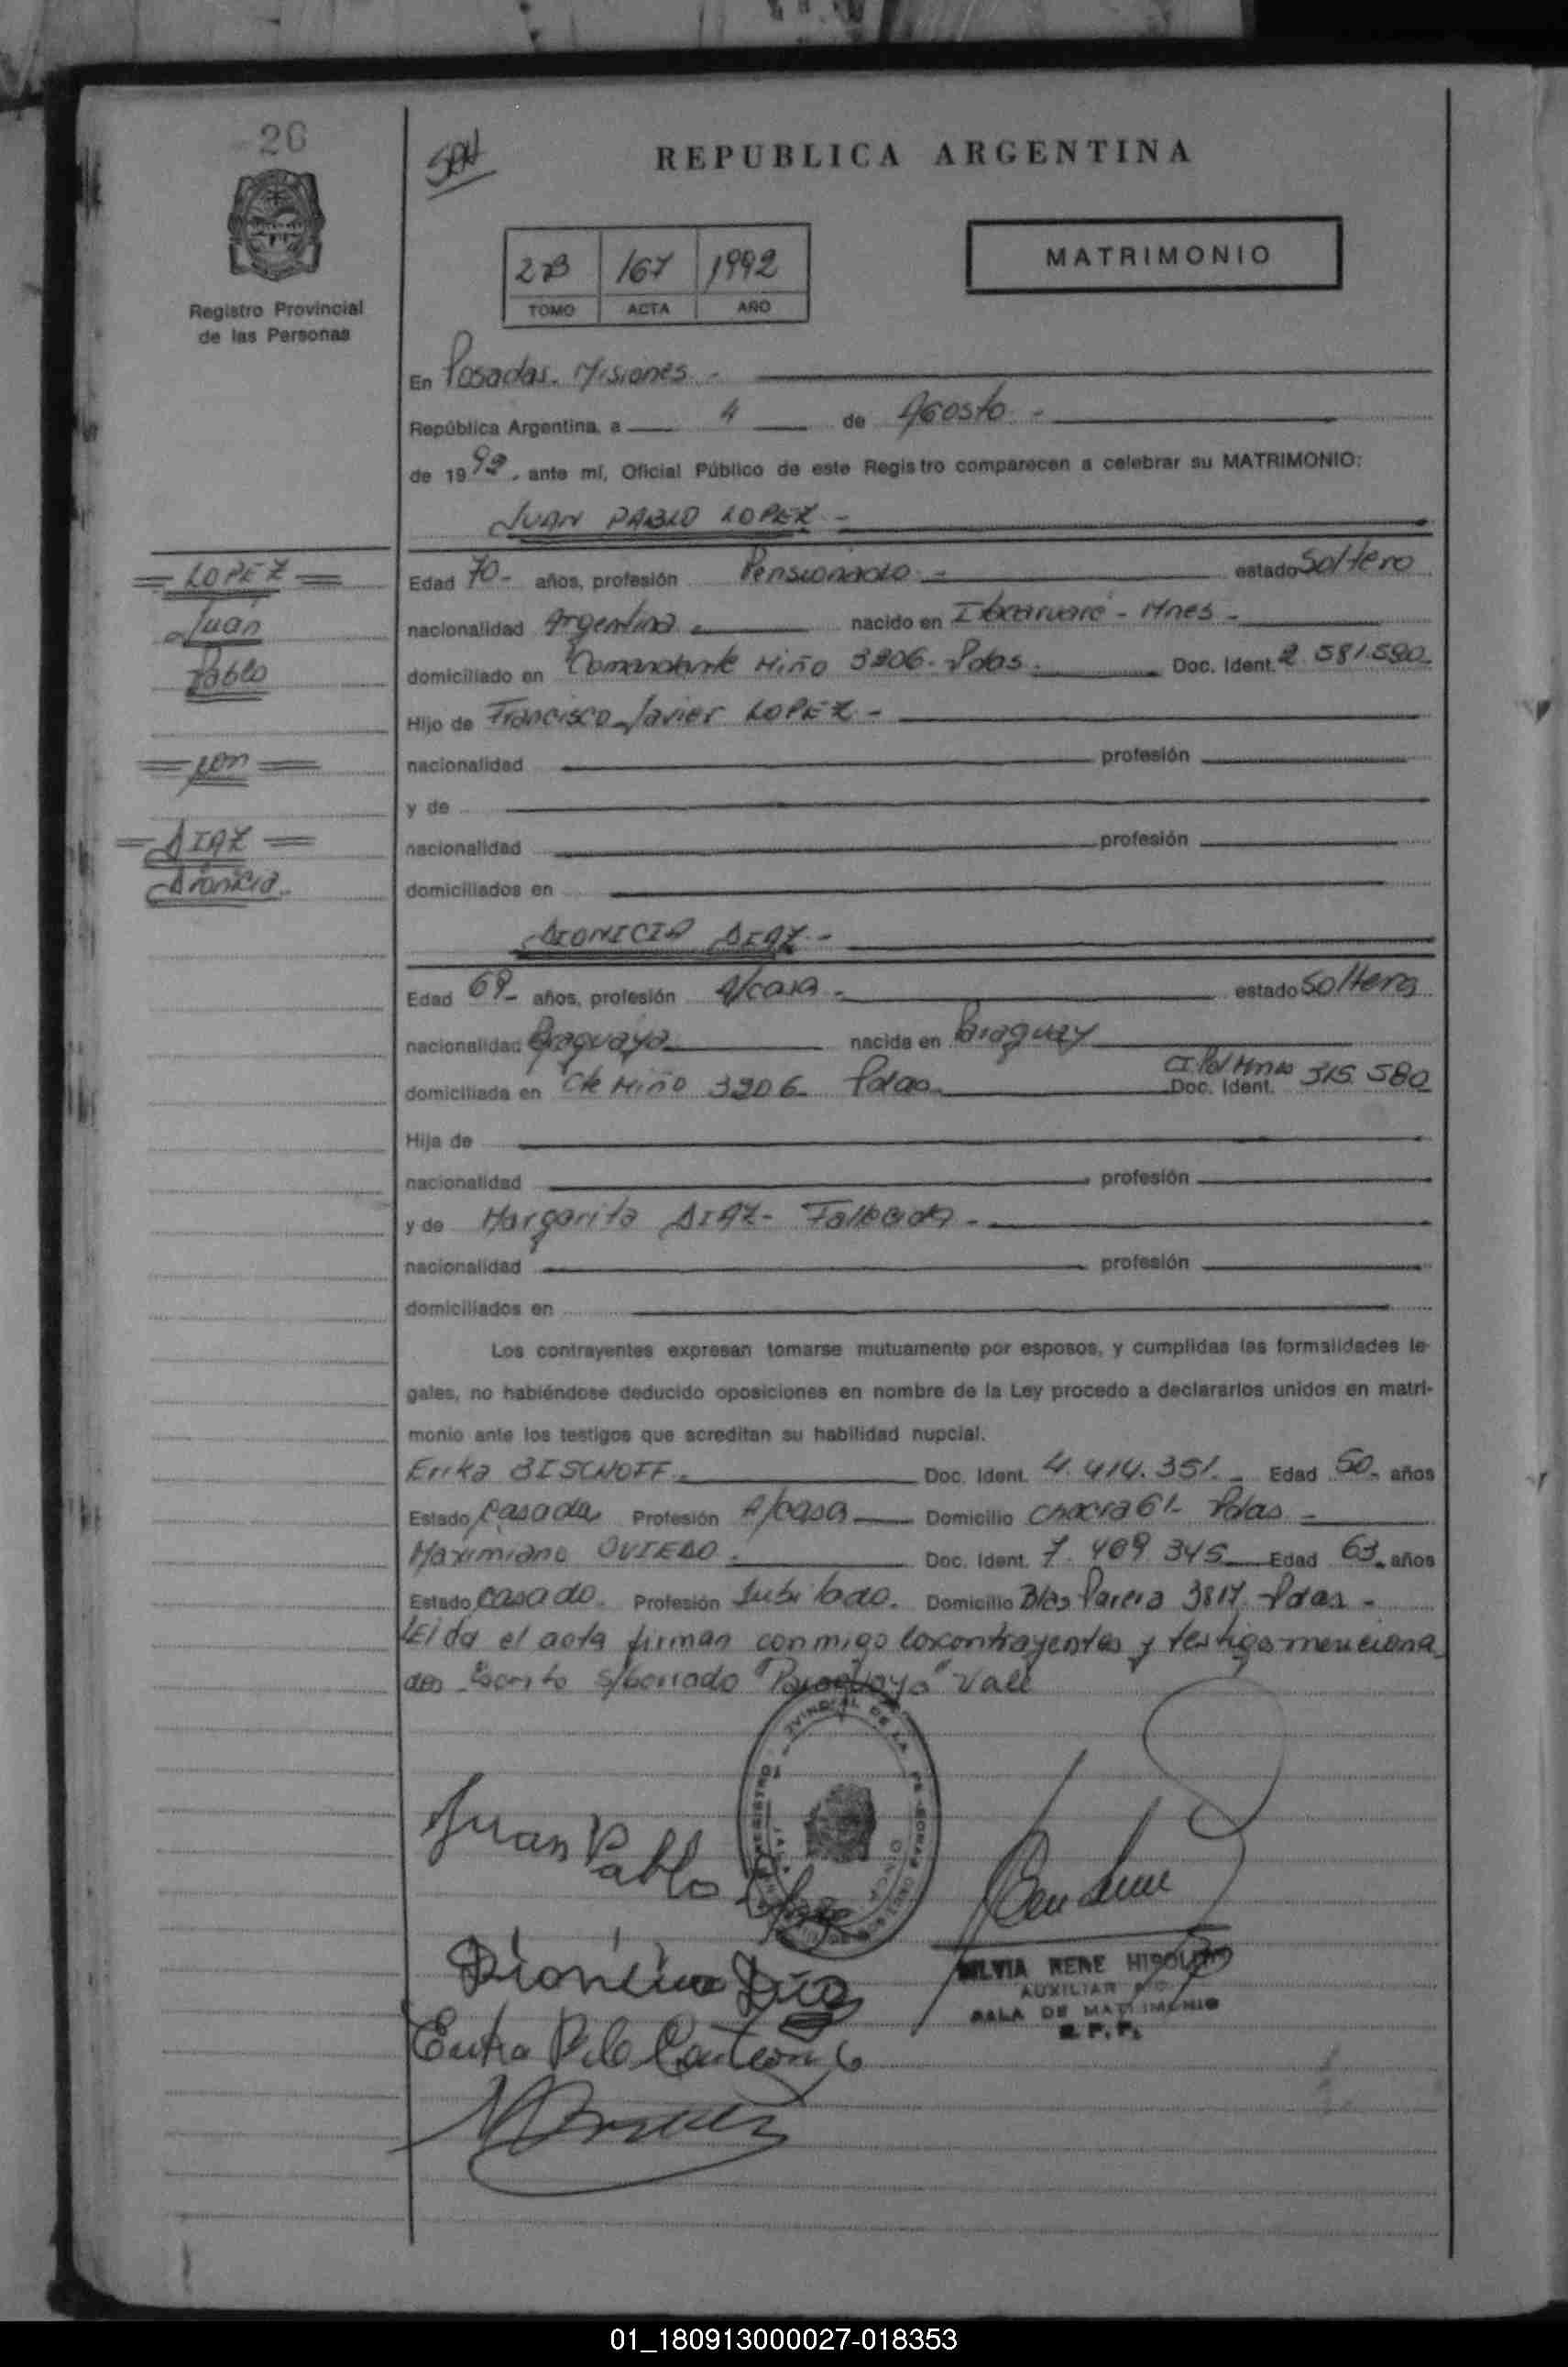 26
REPUBLICA ARGENTINA
2B 167 1992
TOMO ACTA AÑO
MATRIMONIO
Registro Provincial
de las Personas
En Posadas. Misiones -
República Argentina, a 4 de Agosto -
de 1992, ante mí, Oficial Público de este Registro comparecen a celebrar su MATRIMONIO:
JUAN PABLO LOPEZ -
LOPEZ
Juan
Pablo
con
DIAZ
Dionicia
Edad 70- años, profesión Pensionado - estado Soltero
nacionalidad Argentina nacido en - Mnes -
domiciliado en Comandante Miño 3206. Pdas. Doc. Ident. 2.581.590
Hijo de Francisco Javier LOPEZ -
nacionalidad profesión
y de
nacionalidad profesión
domiciliados en
DIONICIA DIAZ -
Edad 69- años, profesión A/casa - estado Soltera
nacionalidad Paraguaya nacida en Paraguay
domiciliada en Cte Miño 3206 Pdas CI. Pol Mnes Doc. Ident. 315.580
Hija de
nacionalidad profesión
y de Margarita DIAZ - Fallecida -
nacionalidad profesión
domiciliados en
Los contrayentes expresan tomarse mutuamente por esposos, y cumplidas las formalidades le-
gales, no habiéndose deducido oposiciones en nombre de la Ley procedo a declararlos unidos en matri-
monio ante los testigos que acreditan su habilidad nupcial.
Erika BISCHOFF. Doc. Ident. 4.414.351. Edad 50. años
Estado Casada Profesión A/casa Domicilio Chacra 61- Pdas -
Maximiano OVIEDO. Doc. Ident. 7.409.345 Edad 63. años
Estado Casado. Profesión Jubilado. Domicilio Blas Parera 3817 Pdas -
Leida el acta firman conmigo los contrayentes y testigo menciona
dos Escrito s/borrado "Paraguaya" Vale
Juan Pablo Lopez
Dionicia Diaz
SILVIA RENE HIPOLITO
AUXILIAR
SALA DE MATRIMONIO
R. P. P.
01_180913000027-018353